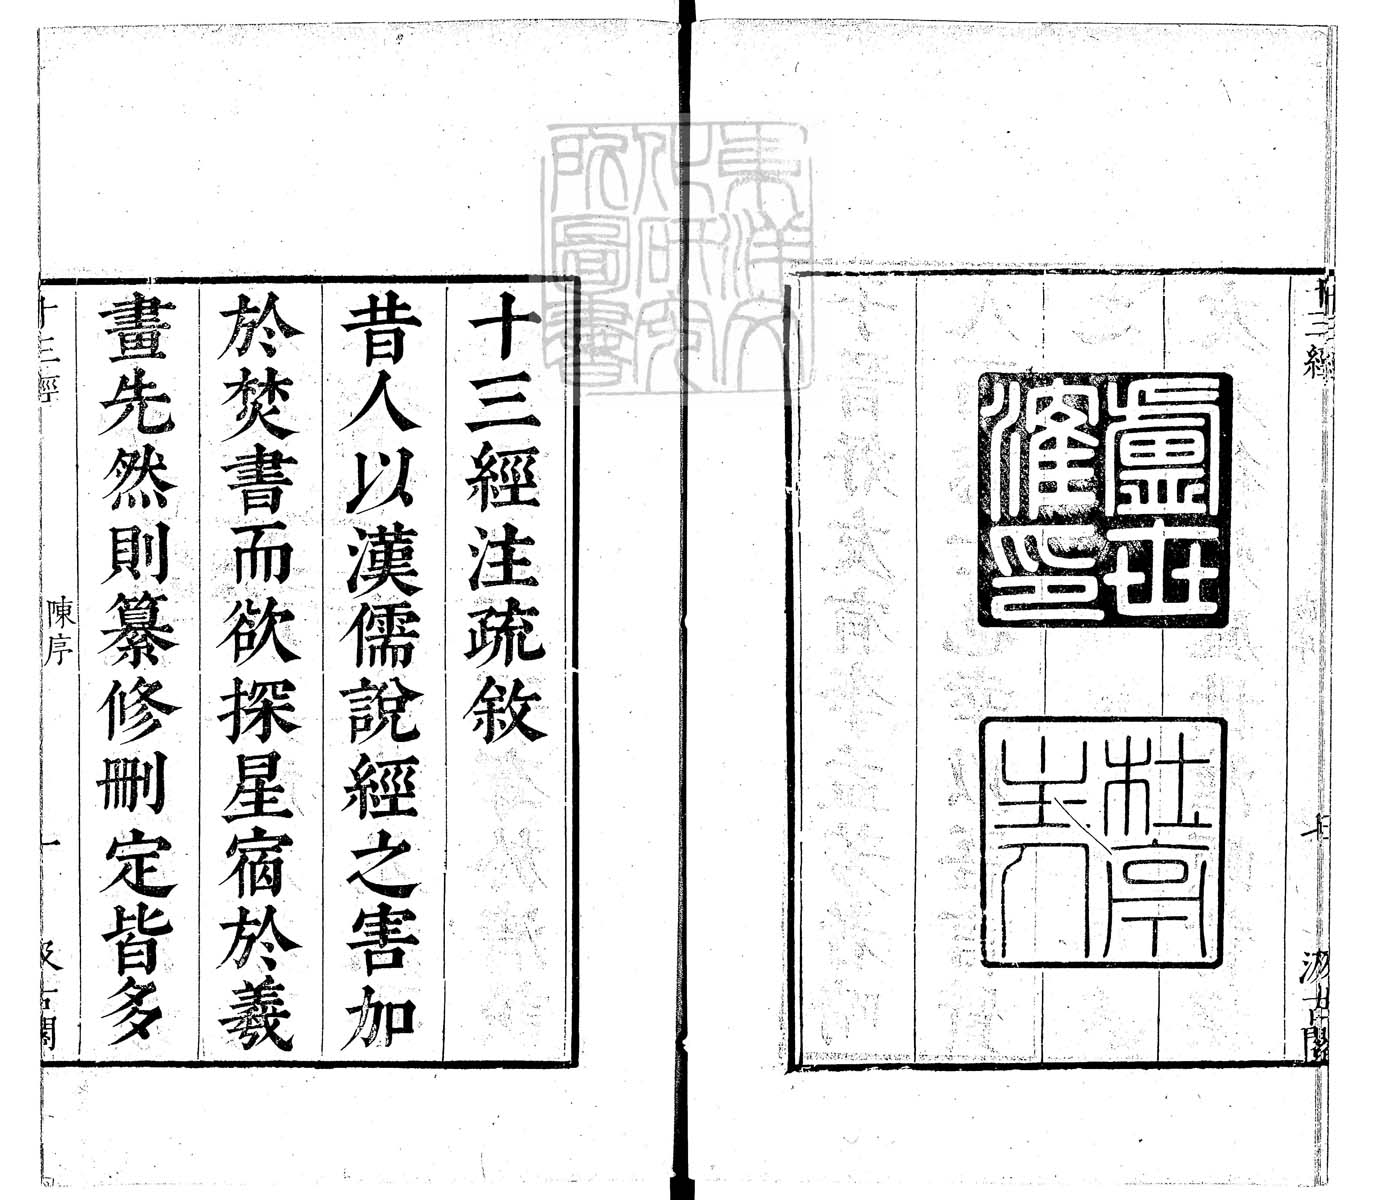 十三經
七
汲古閣
盧世㴶印
杜亭主人
東洋文化研究所圖書
十三經注疏敘
昔人以漢儒說經之害加
於焚書而欲探星宿於羲
畫先然則纂修刪定皆多
十三經
陳序
一
汲古閣